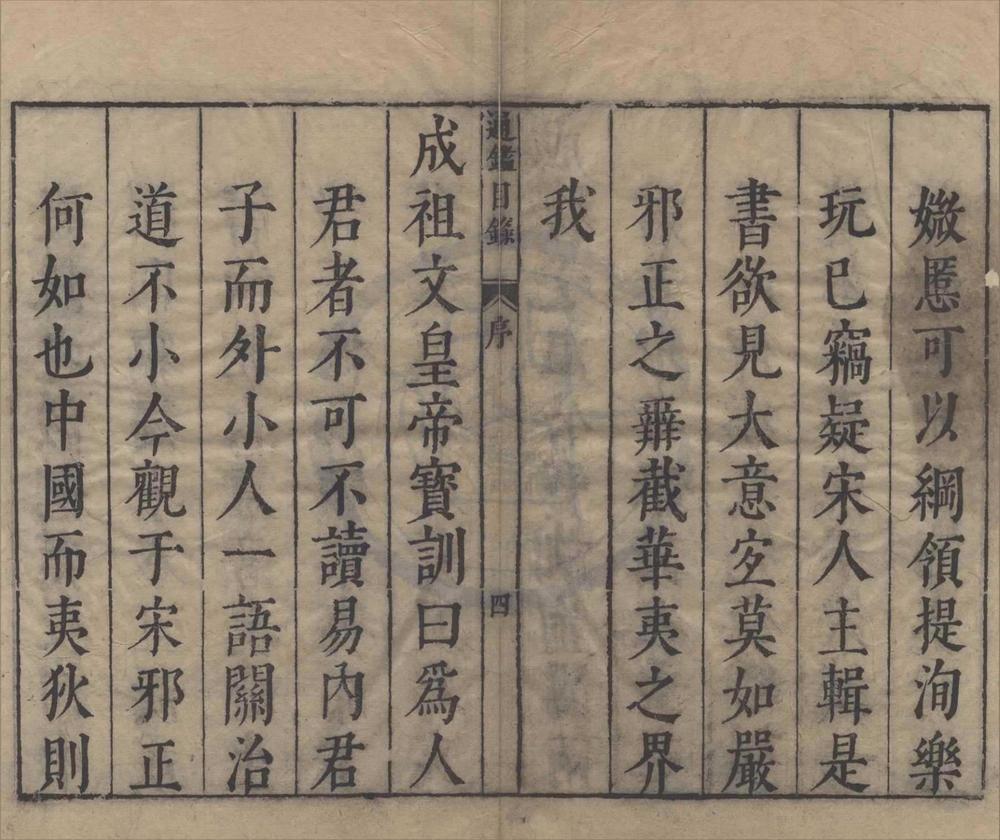 媺慝可以綱領提洵樂
玩已竊疑宋人主輯是
書欲見大意宐莫如嚴
邪正之辨截華夷之界
我
通鑑目錄 序 四
成祖文皇帝寶訓曰爲人
君者不可不讀易內君
子而外小人一語關治
道不小今觀于宋邪正
何如也中國而夷狄則